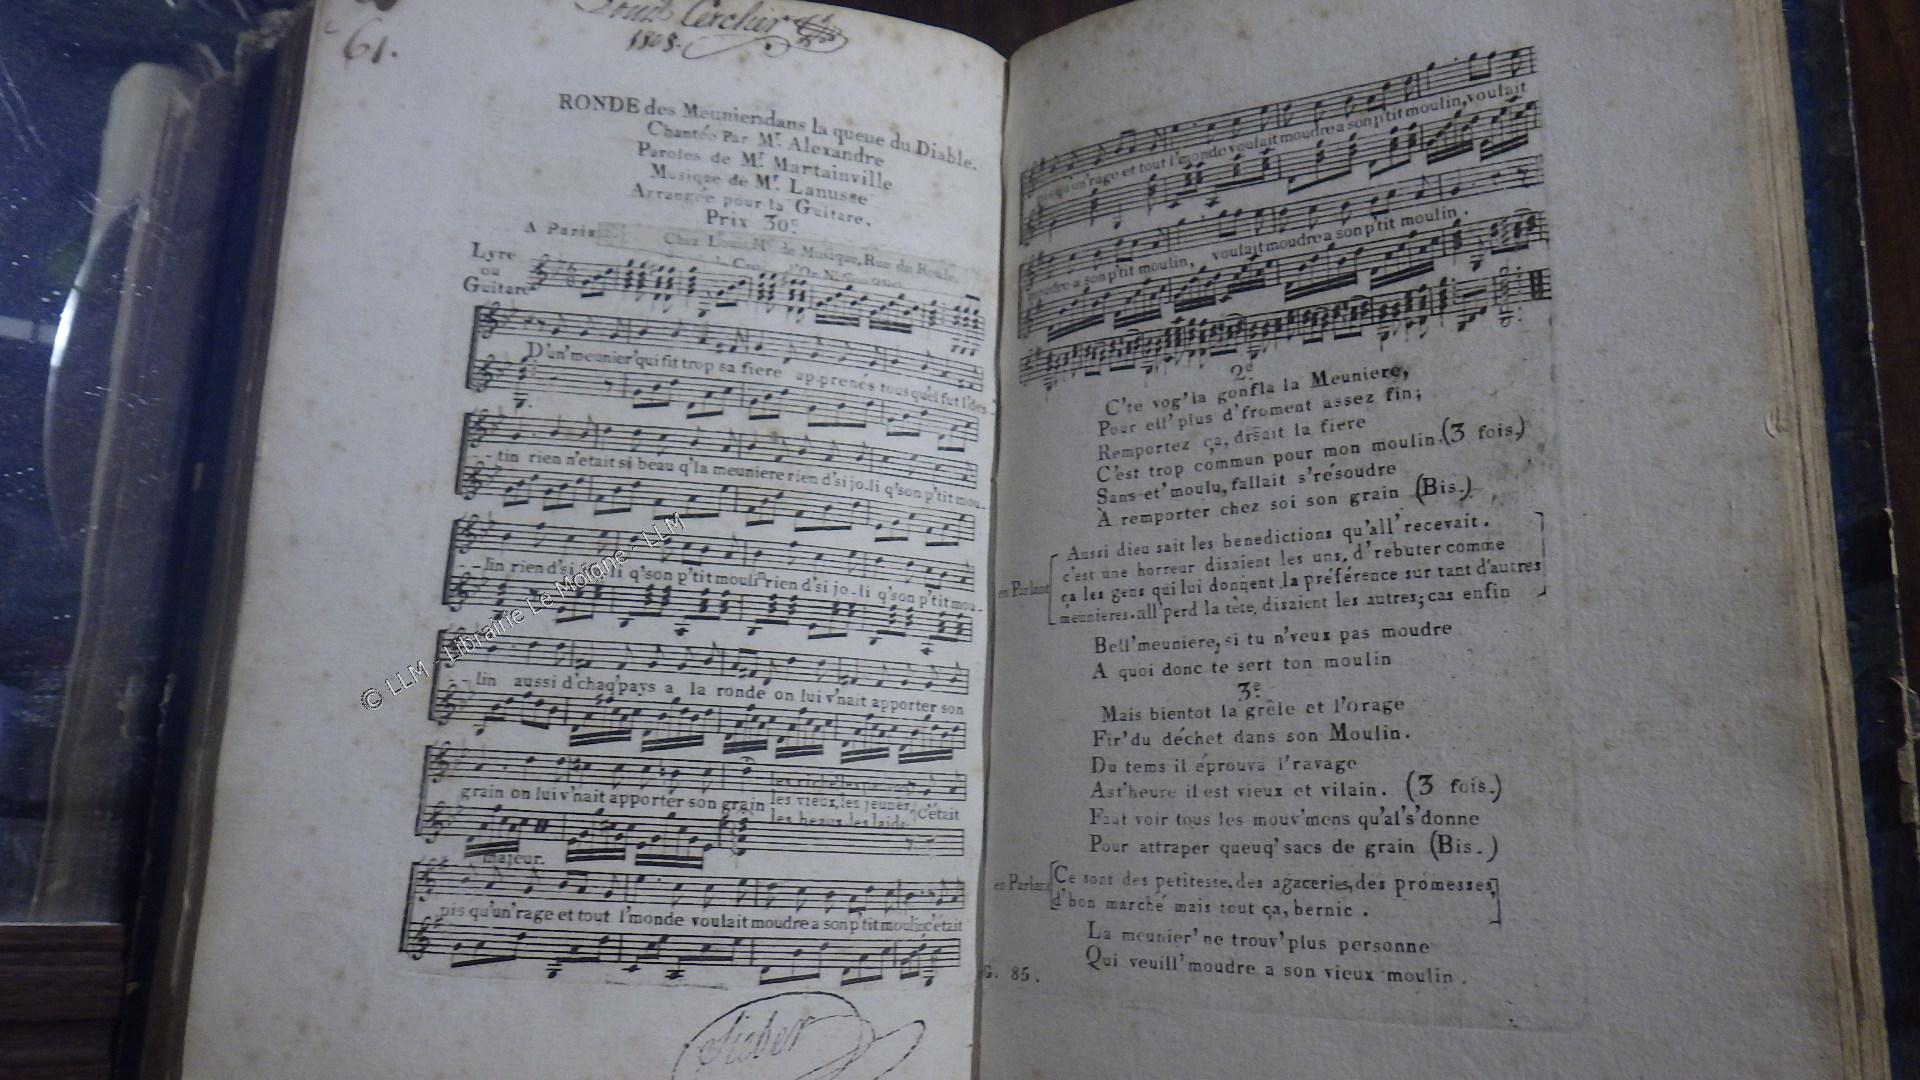 61.
Cerclier
1808.
RONDE des Meuniers dans la queue du Diable.
Chantée Par Mr. Alexandre
Paroles de Mr. Martainville
Musique de Mr. Lanusse
Arrangée pour la Guitare.
Prix 30c
A Paris
Chez Louis, Md. de Musique, Rue du Roule,
Lyre
ou
Guitare
D'un' meunier' qui fit trop sa fiere apprenés tous quel fut l'des-
-tin rien n'etait si beau q'la meuniere rien d'si jo-li q'son p'tit mou-
-lin rien d'si jo-li q'son p'tit moulin rien d'si jo-li q'son p'tit mou-
-lin aussi d'chaq'pays a la ronde on lui v'nait apporter son
grain on lui v'nait apporter son grain
les vieux, les jeunes,
les beaux, les laids
c'était
majeur.
pis qu'un'rage et tout l'monde voulait moudre a son p'tit moulin c'était
Sieber
pis qu'un'rage et tout l'monde voulait moudre a son p'tit moulin, voulait
moudre a son p'tit moulin, voulait moudre a son p'tit moulin.
2e
C'te vog'la gonfla la Meuniere,
Pour ell' plus d'froment assez fin;
Remportez ça, disait la fiere
C'est trop commun pour mon moulin. (3 fois.)
Sans et' moulu, fallait s'résoudre
A remporter chez soi son grain (Bis.)
en Parlant
Aussi dieu sait les benedictions qu'all' recevait.
c'est une horreur disaient les uns, d'rebuter comme
ça les gens qui lui donnent la préférence sur tant d'autres
meunieres. all'perd la tête, disaient les autres; cas enfin
Bell'meuniere, si tu n'veux pas moudre
A quoi donc te sert ton moulin
3e
Mais bientot la grêle et l'orage
Fir'du déchet dans son Moulin.
Du tems il éprouva l'ravage
Ast'heure il est vieux et vilain. (3 fois.)
Faut voir tous les mouv'mens qu'al's'donne
Pour attraper queuq' sacs de grain (Bis.)
en Parlant
Ce sont des petitesse, des agaceries, des promesses,
d'bon marché mais tout ça, bernic.
La meunier' ne trouv'plus personne
Qui veuill'moudre a son vieux moulin.
G. 85.
© LLM - Librairie Le Moigne - LLM